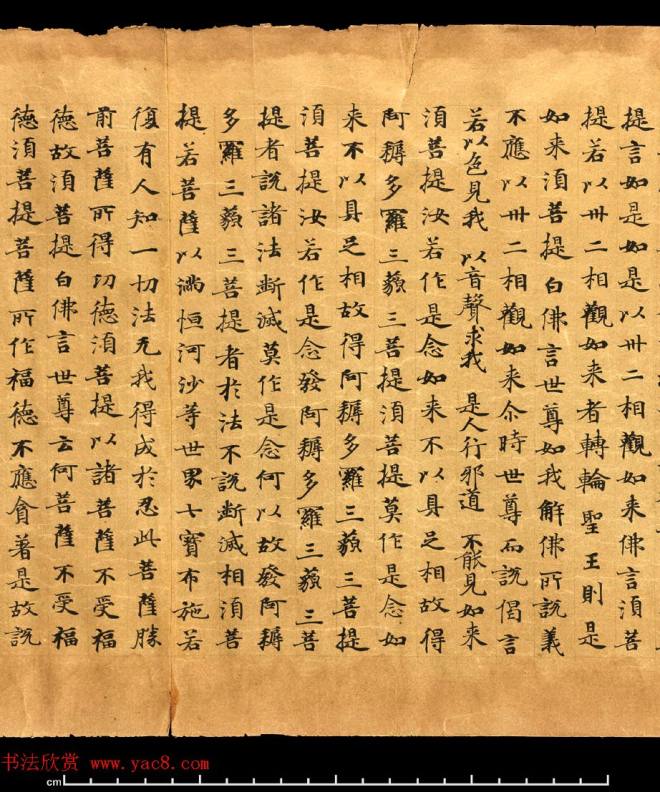 提言如是如是以卅二相觀如来佛言湏菩
提若以卅二相觀如来者轉輪聖王則是
如来湏菩提白佛言世尊如我解佛所說義
不應以卅二相觀如来尒時世尊而說偈言
若以色見我 以音聲求我 是人行邪道 不能見如来
湏菩提汝若作是念如来不以具足相故得
阿耨多羅三藐三菩提湏菩提莫作是念如
来不以具足相故得阿耨多羅三藐三菩提
湏菩提汝若作是念發阿耨多羅三藐三菩
提者說諸法断滅莫作是念何以故發阿耨
多羅三藐三菩提者於法不說断滅相湏菩
提若菩薩以滿恒河沙等世界七寶布施若
復有人知一切法无我得成於忍此菩薩勝
前菩薩所得功德湏菩提以諸菩薩不受福
德故湏菩提白佛言世尊云何菩薩不受福
德湏菩提菩薩所作福德不應貪著是故說
书法欣赏 www.yac8.com
cm